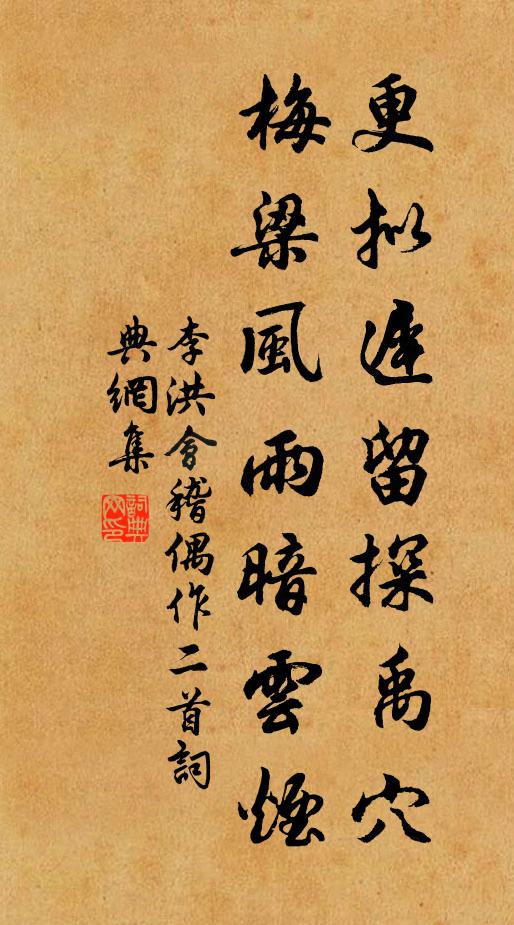 更拟遲留探禹穴
梅梁風雨暗雲煙
李洪會稽偶作二首詞
典網集
詞典網印